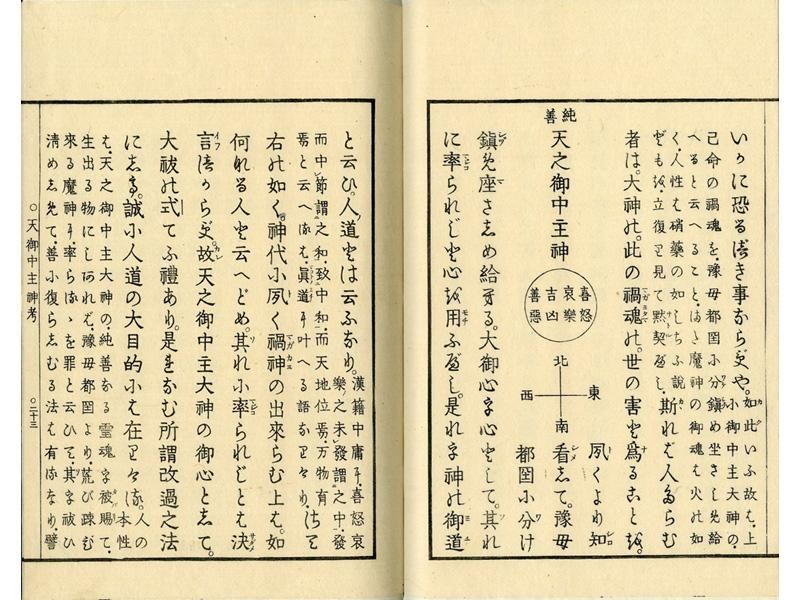 いかに恐るべき事ならずや。如此いふ故は、上
に御中主大神の、
己命の禍魂を、豫母都罔に分鎭め坐さしめ給
へると云へること、はた魔神の御魂も火の如
く、人性も硝藥の如しちふ説
どもを、立復り見て默契べし。斯れば人たらむ
者は。大神の。此の禍魂の。世の害を爲ることを。
純善
天之御中主神
喜怒
哀樂
吉凶
善惡
北
東
西
南
夙くより知
看して。豫母
都罔に分け
鎭め座さしめ給へる。大御心を心として。其れ
に率られじと心を用ふべし。是れぞ神の御道
と云ひ。人道とは云ふなり。漢籍中庸に、喜怒哀
樂之未發謂之中、發
而中節謂之和、致中和、而天地位焉、万物育
焉と云へるは、眞道に叶へる語なり
右の如く神代に夙く禍神の出來らむ上は。如
何なる人と云へども。其れに率られじとは決
言つべからず。故天之御中主大神の御心として。
大祓の式てふ禮あり。是をなむ所謂改過之法
誠に人道の大目的には在りける。人の
本性
は、天之御中主大神の、純善なる靈魂を被賜て、
生出る物にしあれば、豫母都罔より、荒び疎び
來る魔神に、率らるゝを罪と云ひて、其を祓ひ
淸めしめて、善に復らしむる法は有るなり、譬
○天御中主神考 ○二十三